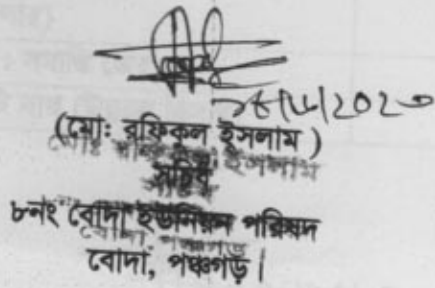 (মো: রফিকুল ইসলাম )
সচিব
৮নং বোদা ইউনিয়ন পরিষদ
বোদা, পঞ্চগড়।